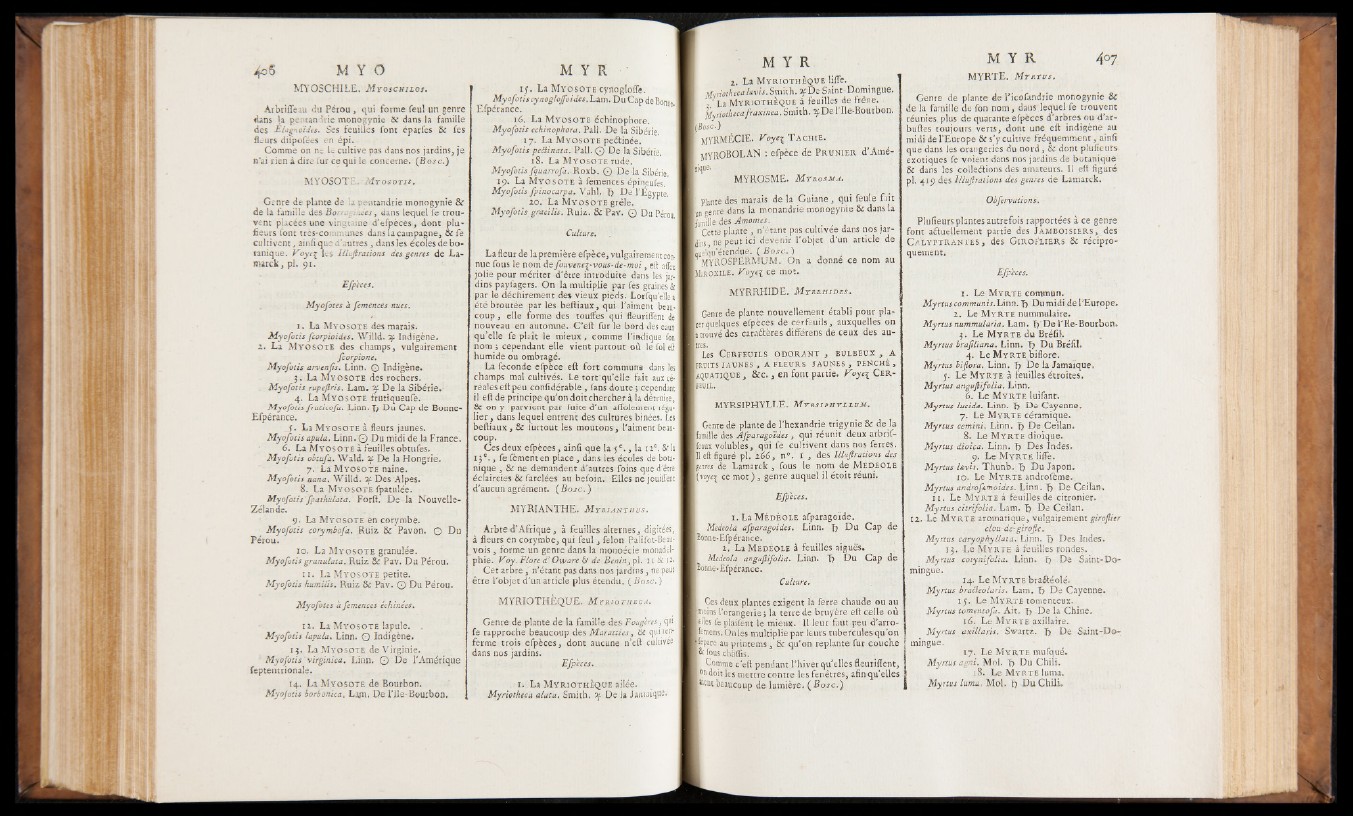 406 M Y O
MYOSCHILE. MYOSCHILOS.
Arbriſſeau du Pérou, qui forme ſeul un genre
dans la pentandrie monogynie & dans la famille
des Elagnoïdes. Ses feuilles ſont éparſes & ſes
fleurs diſpoſées en épi.
Comme on ne le cultive pas dans nos jardins, je
n'ai rien à dire ſur ce qui le concerne. (Bosc.)
MYOSOTE. MYOSOTIS.
Genre de plante de la pentandrie monogynie &
de la famille des Borraginées, dans lequel ſe trou-
vent placées une vingtaine d'eſpèces, dont plu-
ſieurs ſont très-communes dans la campagne, & ſe
cultivent, ainſi que d'autres, dans les écoles de bo-
tanique. Voyez les Illuſtrations des genres de La-
marck, pl. 91.
Eſpèces.
Myoſotes à ſemences nues.
1. La MYOSOTE des marais.
Myoſotis ſcorpioides. Willd. ♃ Indigène.
2. La MYOSOTE des champs, vulgairement
ſcorpione.
Myoſotis arvenſis. Linn. ☉ Indigène.
3. La MYOSOTE des rochers.
Myoſotis rupeſtris. Lam. ♃ De la Sibérie.
4. La MYOSOTE frutiqueuſe.
Myoſotis fruticoſa. Linn. ♄ Du Cap de Bonne-
Eſpérance.
5. La MYOSOTE à fleurs jaunes.
Myoſotis apula. Linn. ☉ Du midi de la France.
6. La MYOSOTE à feuilles obtuſes.
Myoſotis obtuſa. Wald. ♃ De la Hongrie.
7. La MYOSOTE naine.
Myoſotis nana. Willd. ♃ Des Alpes.
8. La MYOSOTE ſpatulée.
Myoſotis ſpathulata. Forſt. De la Nouvelle-
Zélande.
9. La MYOSOTE en corymbe.
Myoſotis corymboſa. Ruiz & Pavon. ☉ Du
Pérou.
10. La MYOSOTE granulée.
Myoſotis granulata. Ruiz & Pav. Du Pérou.
11. La MYOSOTE petite.
Myoſotis humilis. Ruiz & Pav. ☉ Du Pérou.
Myoſotes à ſemences échinées.
12. La MYOSOTE lapule.
Myoſotis lapula. Linn. ☉ Indigène.
13. La MYOSOTE de Virginie.
Myoſotis virginica. Linn. ☉ De l'Amérique
ſeptentrionale.
14. La MYOSOTE de Bourbon.
Myoſotis borbonica. Lam. De l'Ile-Bourbon.
M Y R
15. La MYOSOTE cynogloſſe.
Myoſotis cynogloſſoides. Lam. Du Cap de Bonne-
Eſpérance.
16. La MYOSOTE échinophore.
Myoſotis echinophora. Pall. De la Sibérie.
17. La MYOSOTE pectinée.
Myoſotis pectinata. Pall. ☉ De la Sibérie.
18. La MYOSOTE rude.
Myoſotis ſquarroſa. Roxb. ☉ De la Sibérie.
19. La MYOSOTE à ſemences épineuſes.
Myoſotis ſpinocarpa. Vahl. ♄ De l'Égypte.
20. La MYOSOTE grêle.
Myoſotis gracilis. Ruiz. & Pav. ☉ Du Pérou.
Culture.
La fleur de la première eſpèce, vulgairement con-
nue ſous le nom de ſouvenez-vous-de-moi, eſt aſſez
jolie pour mériter d'être introduite dans les jar-
dins payſagers. On la multiplie par ſes graines &
par le déchirement des vieux pieds. Lorſqu'elle a
été broutée par les beſtiaux, qui l'aiment beau-
coup, elle forme des touffes qui fleuriſſent de
nouveau en automne. C'eſt ſur le bord des eaux
qu'elle ſe plaît le mieux, comme l'indique ſon
nom; cependant elle vient partout où le ſol eſt
humide ou ombragé.
La ſeconde eſpèce eſt fort commune dans les
champs mal cultivés. Le tort qu'elle fait aux cé-
réales eſt peu conſidérable, ſans doute; cependant
il eſt de principe qu'on doit chercher à la détruire,
& on y parvient par ſuite d'un aſſolement régu-
lier, dans lequel entrent des cultures binées. Les
beſtiaux, & ſurtout les moutons, l'aiment beau-
coup.
Ces deux eſpèces, ainſi que la 5e., la 12e. & la
13e., ſe ſèment en place, dans les écoles de bota-
nique, & ne demandent d'autres ſoins que d'être
éclaircies & ſarclées au beſoin. Elles ne jouiſſent
d'aucun agrément. (Bosc.)
MYRIANTHE. MYRIANTHUS.
Arbre d'Afrique, à feuilles alternes, digitées,
à fleurs en corymbe, qui ſeul, ſelon Paliſot-Beau-
vois, forme un genre dans la monoécie monadel-
phie. Voy. Flore d'Oware & de Benin, pl. 11 & 12.
Cet arbre, n'étant pas dans nos jardins, ne peut
être l'objet d'un article plus étendu. (Bosc.)
MYRIOTHÈQUE. MYRIOTHECA.
Genre de plante de la famille des Fougères, qui
ſe rapproche beaucoup des Maratties, & qui ren-
ferme trois eſpèces, dont aucune n'eſt cultivée
dans nos jardins.
Eſpèces.
1. La MYRIOTHÈQUE ailée.
Myriotheca alata. Smith. ♃ De la Jamaïque.
M Y R
2. La MYRIOTHÈQUE liſſe.
Myriotheca lævis. Smith. ♃ De Saint-Domingue.
3. La MYRIOTHÈQUE à feuilles de frêne.
Myriotheca fraxinea. Smith. ♃ De l'Ile-Bourbon.
(Bosc.)
MYRMÉCIE. Voyez TACHIE.
MYROBOLAN : eſpèce de PRUNIER d'Amé-
rique.
MYROSME. MYROSMA.
Plante des marais de la Guiane, qui ſeule fait
un genre dans la monandrie monogynie & dans la
famille des Amomes.
Cette plante, n'étant pas cultivée dans nos jar-
dins, ne peut ici devenir l'objet d'un article de
quelqu'étendue. (Bosc.)
MYROSPERMUM. On a donné ce nom au
MIROXILE. Voyez ce mot.
MYRRHIDE. MYRRHIDES.
Genre de plante nouvellement établi pour pla-
cer quelques eſpèces de cerfeuils, auxquelles on
a trouvé des caractères différens de ceux des au-
tres.
Les CERFEUILS ODORANT, BULBEUX, A
FRUITS JAUNES, A FLEURS JAUNES, PENCHÉ,
AQUATIQUE, &c., en font partie. Voyez CER-
FEUIL.
MYRSIPHYLLE. MYRSIPHYLLUM.
Genre de plante de l'hexandrie trigynie & de la
famille des Aſparagoïdes, qui réunit deux arbriſ-
ſeaux volubles, qui ſe cultivent dans nos ſerres.
Il eſt figuré pl. 266, n°. 1, des Illuſtrations des
genres de Lamarck, ſous le nom de MEDEOLE
(voyez ce mot), genre auquel il étoit réuni.
Eſpèces.
1. La MÉDÉOLE aſparagoïde.
Medeola aſparagoides. Linn. ♄ Du Cap de
Bonne-Eſpérance.
2. La MEDEOLE à feuilles aiguës.
Medeola anguſtifolia. Linn. ♄ Du Cap de
Bonne-Eſpérance.
Culture.
Ces deux plantes exigent la ſerre chaude ou au
moins l'orangerie; la terre de bruyère eſt celle où
elles ſe plaiſent le mieux. Il leur faut peu d'arro-
ſemens. On les multiplie par leurs tubercules qu'on
ſépare au printems, & qu'on replante ſur couche
& ſous châſſis.
Comme c'eſt pendant l'hiver qu'elles fleuriſſent,
on doit les mettre contre les fenêtres, afin qu'elles
aient beaucoup de lumière. (Bosc.)
M Y R 407
MYRTE. MYRTUS.
Genre de plante de l'icoſandrie monogynie &
de la famille de ſon nom, dans lequel ſe trouvent
réunies plus de quarante eſpèces d'arbres ou d'ar-
buſtes toujours verts, dont une eſt indigène au
midi de l'Europe & s'y cultive fréquemment, ainſi
que dans les orangeries du nord, & dont pluſieurs
exotiques ſe voient dans nos jardins de botanique
& dans les collections des amateurs. Il eſt figuré
pl. 419 des Illuſtrations des genres de Lamarck.
Obſervations.
Pluſieurs plantes autrefois rapportées à ce genre
font actuellement partie des JAMBOISIERS, des
CALYPTRANTES, des GIROFLIERS & récipro-
quement.
Eſpèces.
1. Le MYRTE commun.
Myrtus communis. Linn. ♄ Du midi de l'Europe.
2. Le MYRTE nummulaire.
Myrtus nummularia. Lam. ♄ De l'Ile-Bourbon.
3. Le MYRTE du Bréſil.
Myrtus braſiliana. Linn. ♄ Du Bréſil.
4. Le MYRTE biflore.
Myrtus biflora. Linn. ♄ De la Jamaïque.
5. Le MYRTE à feuilles étroites.
Myrtus anguſtifolia. Linn.
6. Le MYRTE luiſant.
Myrtus lucida. Linn. ♄ De Cayenne.
7. Le MYRTE céramique.
Myrtus cemini. Linn. ♄ De Ceilan.
8. Le MYRTE dioïque.
Myrtus dioica. Linn. ♄ Des Indes.
9. Le MYRTE liſſe.
Myrtus lævis. Thunb. ♄ Du Japon.
10. Le MYRTE androſème.
Myrtus androſæmoides. Linn. ♄ De Ceilan.
11. Le MYRTE à feuilles de citronier.
Myrtus citrifolia. Lam. ♄ De Ceilan.
12. Le MYRTE aromatique, vulgairement giroflier
clou de girofle.
Myrtus caryophyllata. Linn. ♄ Des Indes.
13. Le MYRTE à feuilles rondes.
Myrtus cotynifolia. Linn. ♄ De Saint-Do-
mingue.
14. Le MYRTE bractéolé.
Myrtus bracteolaris. Lam. ♄ De Cayenne.
15. Le MYRTE tomenteux.
Myrtus tomentoſa. Ait. ♄ De la Chine.
16. Le MYRTE axillaire.
Myrtus axillaris. Swartz. ♄ De Saint-Do-
mingue.
17. Le MYRTE muſqué.
Myrtus ugni. Mol. ♄ Du Chili.
18. Le MYRTE luma.
Myrtus luma. Mol. ♄ Du Chili.